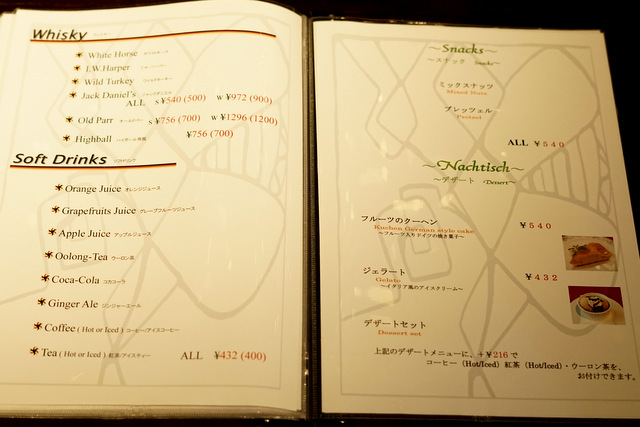 Whisky
White Horse
I.W.Harper
Wild Turkey
Jack Daniel's
ALL s ¥540 (500) w ¥972 (900)
Old Parr s ¥756 (700) w ¥1296 (1200)
Highball ¥756 (700)
Soft Drinks ソフトドリンク
Orange Juice オレンジジュース
Grapefruits Juice グレープフルーツジュース
Apple Juice アップルジュース
Oolong-Tea ウーロン茶
Coca-Cola コカコーラ
Ginger Ale ジンジャーエール
Coffee ( Hot or Iced ) コーヒー/アイスコーヒー
Tea ( Hot or Iced ) 紅茶/アイスティー ALL ¥432 (400)
~Snacks~
~スナック Snacks~
ミックスナッツ
Mixed Nuts
プレッツェル
Pretzel
ALL ¥540
~Nachtisch~
~デザート Dessert~
フルーツのクーヘン ¥540
Kuchen German style cake
~フルーツ入りドイツの焼き菓子~
ジェラート ¥432
Gelato
~イタリア風のアイスクリーム~
デザートセット
Dessert set
上記のデザートメニューに、+¥216で
コーヒー (Hot/Iced) 紅茶 (Hot/Iced)・ウーロン茶を、
お付けできます。